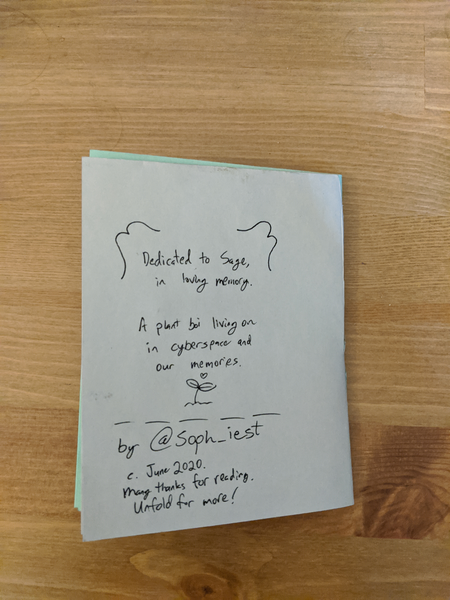 Dedicated to Sage,
in loving memory.
A plant boi living on
in cyberspace and
our memories.
by @soph_iest
c. June 2020.
Many thanks for reading.
Unfold for more!